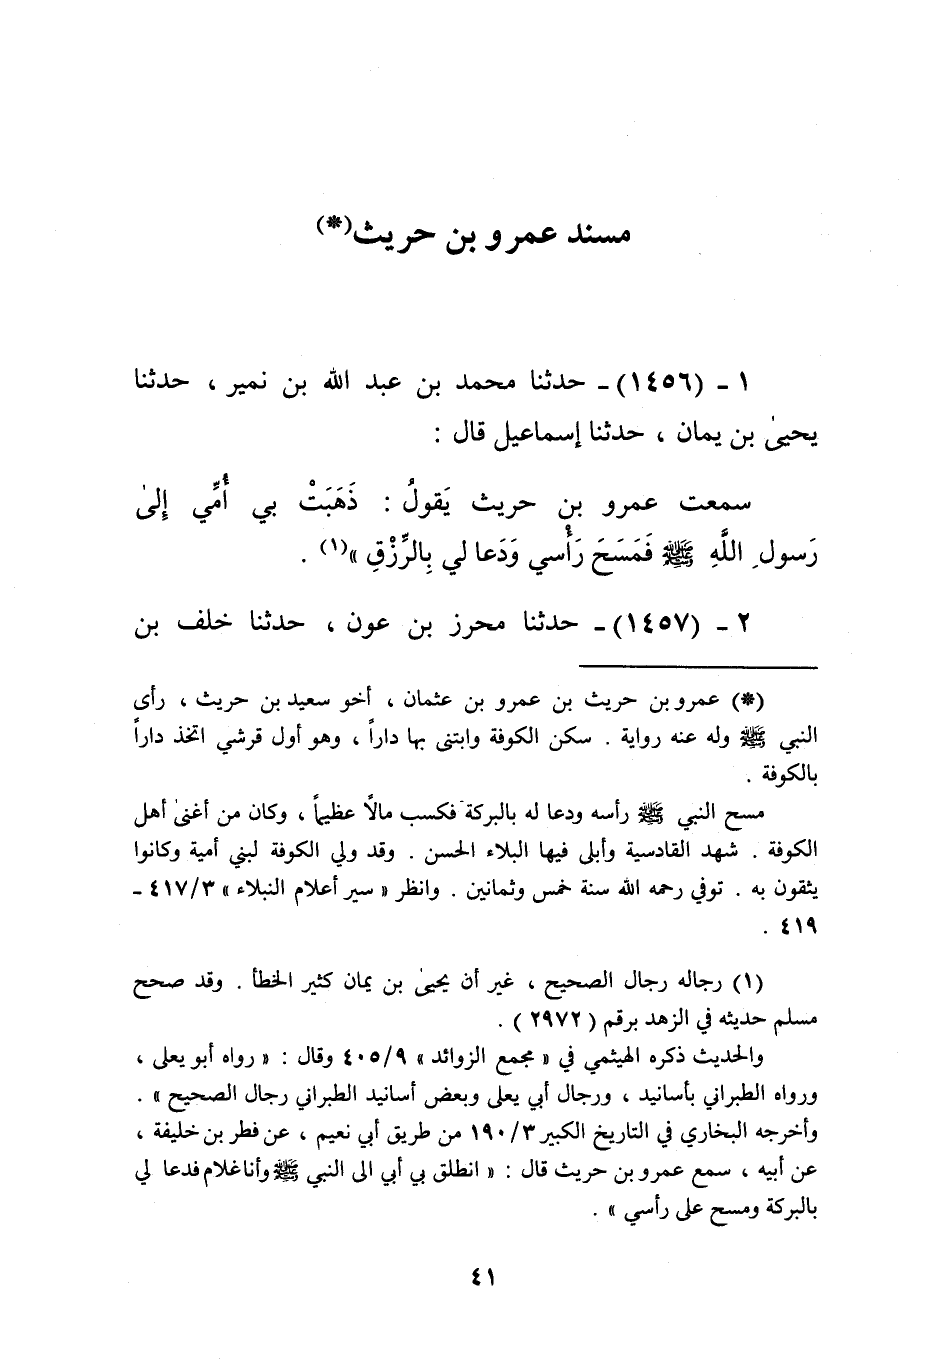 مسند عمرو بن حريث(*)
١ - (١٤٥٦) - حدثنا محمد بن عبد الله بن نمير ، حدثنا
يحيىٰ بن يمان ، حدثنا إسماعيل قال :
سمعت عمرو بن حريث يَقولُ : ذَهَبَتْ بي أُمِّي إِلىٰ
رَسولِ اللَّهِ ﷺ فَمَسَحَ رَأْسي وَدَعا لي بِالرِّزْقِ »(١) .
٢ - (١٤٥٧) - حدثنا محرز بن عون ، حدثنا خلف بن
(*) عمرو بن حريث بن عمرو بن عثمان ، أخو سعيد بن حريث ، رأى
النبي ﷺ وله عنه رواية . سكن الكوفة وابتنى بها داراً ، وهو أول قرشي اتخذ داراً
بالكوفة .
مسح النبي ﷺ رأسه ودعا له بالبركة فكسب مالًا عظيماً ، وكان من أغنىٰ أهل
الكوفة . شهد القادسية وأبلى فيها البلاء الحسن . وقد ولي الكوفة لبني أمية وكانوا
يثقون به . توفي رحمه الله سنة خمس وثمانين . وانظر « سير أعلام النبلاء » ٤١٧/٣ -
٤١٩ .
(١) رجاله رجال الصحيح ، غير أن يحيىٰ بن يمان كثير الخطأ . وقد صحح
مسلم حديثه في الزهد برقم ( ٢٩٧٢ ) .
والحديث ذكره الهيثمي في « مجمع الزوائد » ٤٠٥/٩ وقال : « رواه أبو يعلى ،
ورواه الطبراني بأسانيد ، ورجال أبي يعلى وبعض أسانيد الطبراني رجال الصحيح » .
وأخرجه البخاري في التاريخ الكبير ١٩٠/٣ من طريق أبي نعيم ، عن فطر بن خليفة ،
عن أبيه ، سمع عمرو بن حريث قال : « انطلق بي أبي الى النبي ﷺ وأنا غلام فدعا لي
بالبركة ومسح على رأسي » .
٤١